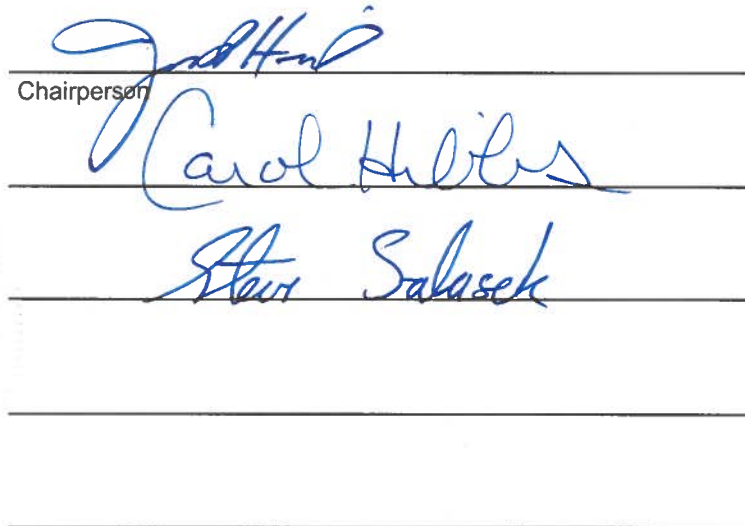 Chairperson
Carol Hibbs
Steve Salasek